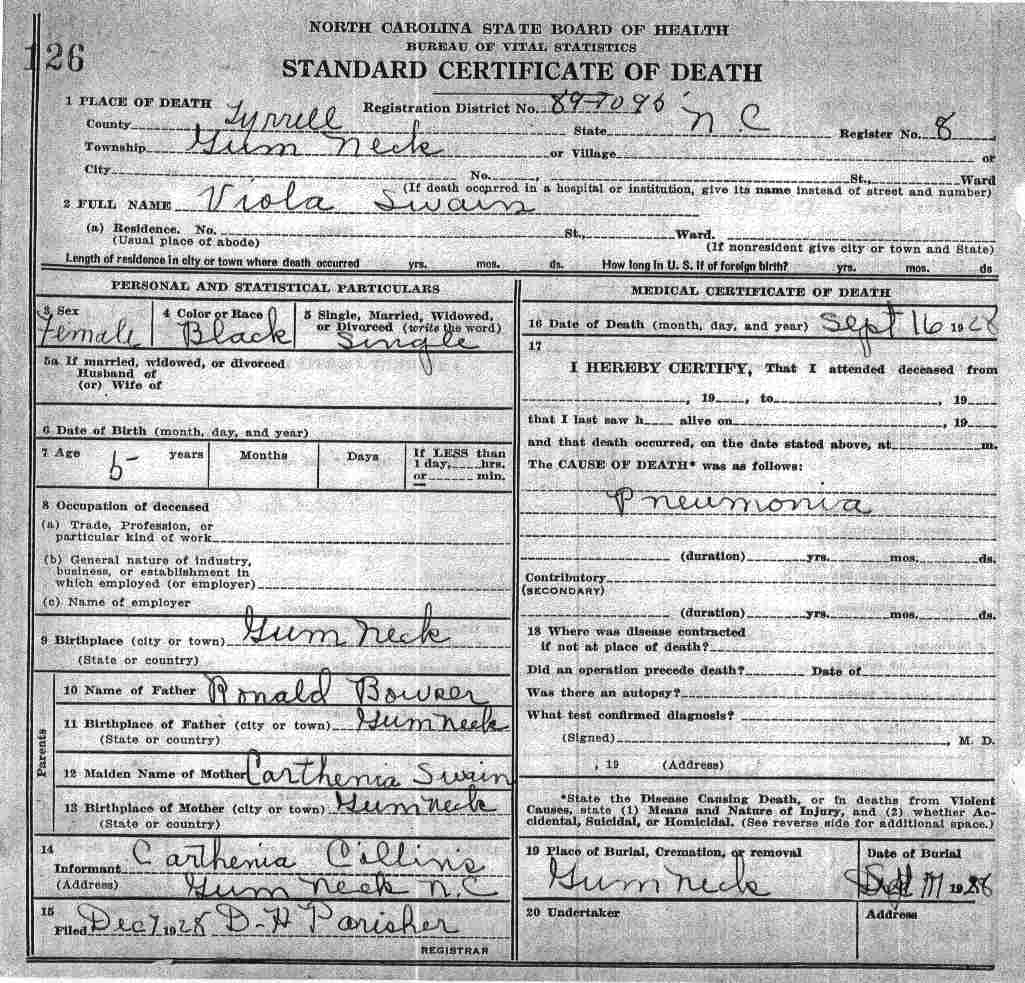 126
NORTH CAROLINA STATE BOARD OF HEALTH
BUREAU OF VITAL STATISTICS
STANDARD CERTIFICATE OF DEATH
1 PLACE OF DEATH Registration District No. 89-7096
County Tyrrell State N.C Register No. 8
Township Gum Neck or Village or
City No. , St., Ward
(If death occurred in a hospital or institution, give its name instead of street and number)
2 FULL NAME Viola Swain
(a) Residence. No. St., Ward.
(Usual place of abode) (If nonresident give city or town and State)
Length of residence in city or town where death occurred yrs. mos. ds. How long in U. S. if of foreign birth? yrs. mos. ds
PERSONAL AND STATISTICAL PARTICULARS
3 Sex
Female
4 Color or Race
Black
5 Single, Married, Widowed,
or Divorced (write the word)
Single
5a If married, widowed, or divorced
Husband of
(or) Wife of
6 Date of Birth (month, day, and year)
7 Age years Months Days If LESS than
1 day, hrs.
or min.
8 Occupation of deceased
(a) Trade, Profession, or
particular kind of work
(b) General nature of industry,
business, or establishment in
which employed (or employer)
(c) Name of employer
9 Birthplace (city or town) Gum Neck
(State or country)
Parents
10 Name of Father Ronald Bowser
11 Birthplace of Father (city or town) Gum neck
(State or country)
12 Maiden Name of Mother Carthenia Swain
13 Birthplace of Mother (city or town) Gum neck
(State or country)
14
Informant Carthenia Cillins
(Address) Gum Neck N.C
15
Filed Dec 7 1928 D-H Parisher
REGISTRAR
MEDICAL CERTIFICATE OF DEATH
16 Date of Death (month, day, and year) Sept 16 1928
17
I HEREBY CERTIFY, That I attended deceased from
, 19 , to , 19
that I last saw h alive on , 19
and that death occurred, on the date stated above, at m.
The CAUSE OF DEATH* was as follows:
Pneumonia
(duration) yrs. mos. ds.
Contributory
(SECONDARY)
(duration) yrs. mos. ds.
18 Where was disease contracted
if not at place of death?
Did an operation precede death? Date of
Was there an autopsy?
What test confirmed diagnosis?
(Signed) , M. D.
, 19 (Address)
*State the Disease Causing Death, or in deaths from Violent
Causes, state (1) Means and Nature of Injury, and (2) whether Ac-
cidental, Suicidal, or Homicidal. (See reverse side for additional space.)
19 Place of Burial, Cremation, or removal
Gum neck
Date of Burial
Sept 1928
20 Undertaker
Address